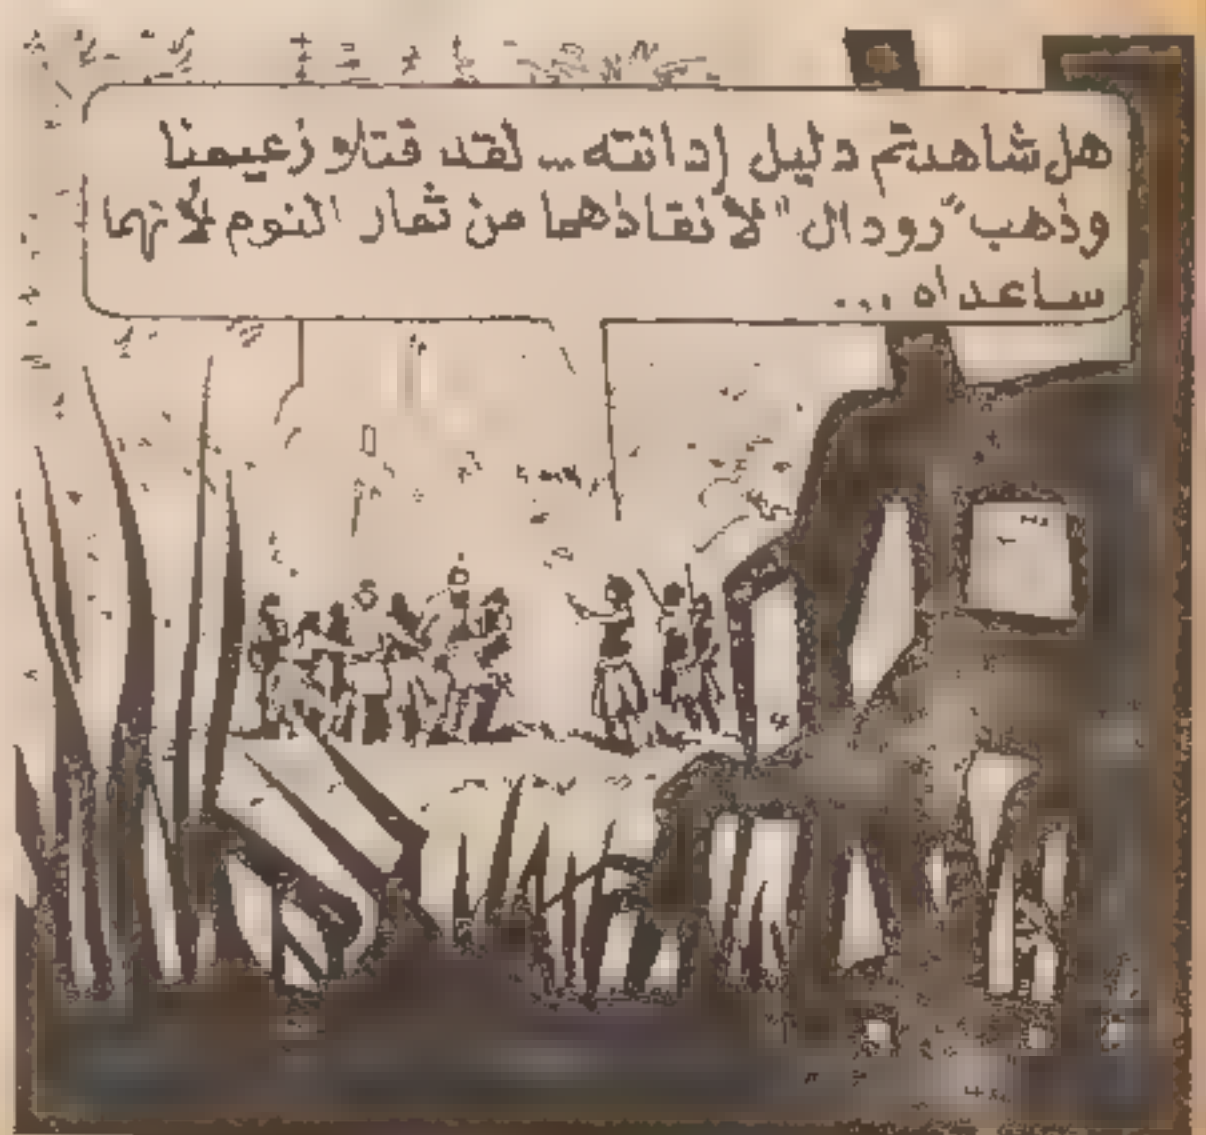 هل شاهدتم دليل إدانته... لقد قتلا زعيمنا
وذهب "رودال" لانقاذهما من ثمار النوم لأنهما
ساعداه ...